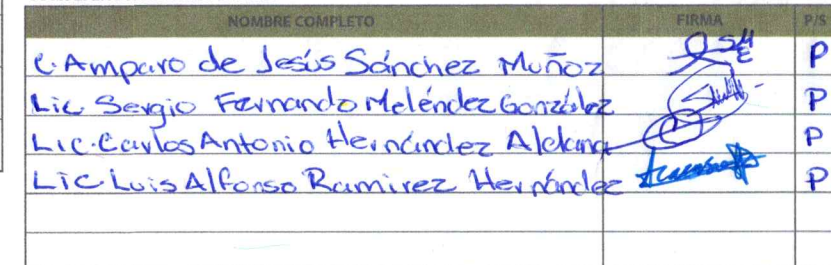 NOMBRE COMPLETO FIRMA P/S
C. Amparo de Jesús Sánchez Muñoz P
Lic. Sergio Fernando Meléndez González P
Lic. Carlos Antonio Hernández Aldana P
Lic Luis Alfonso Ramirez Hernández P